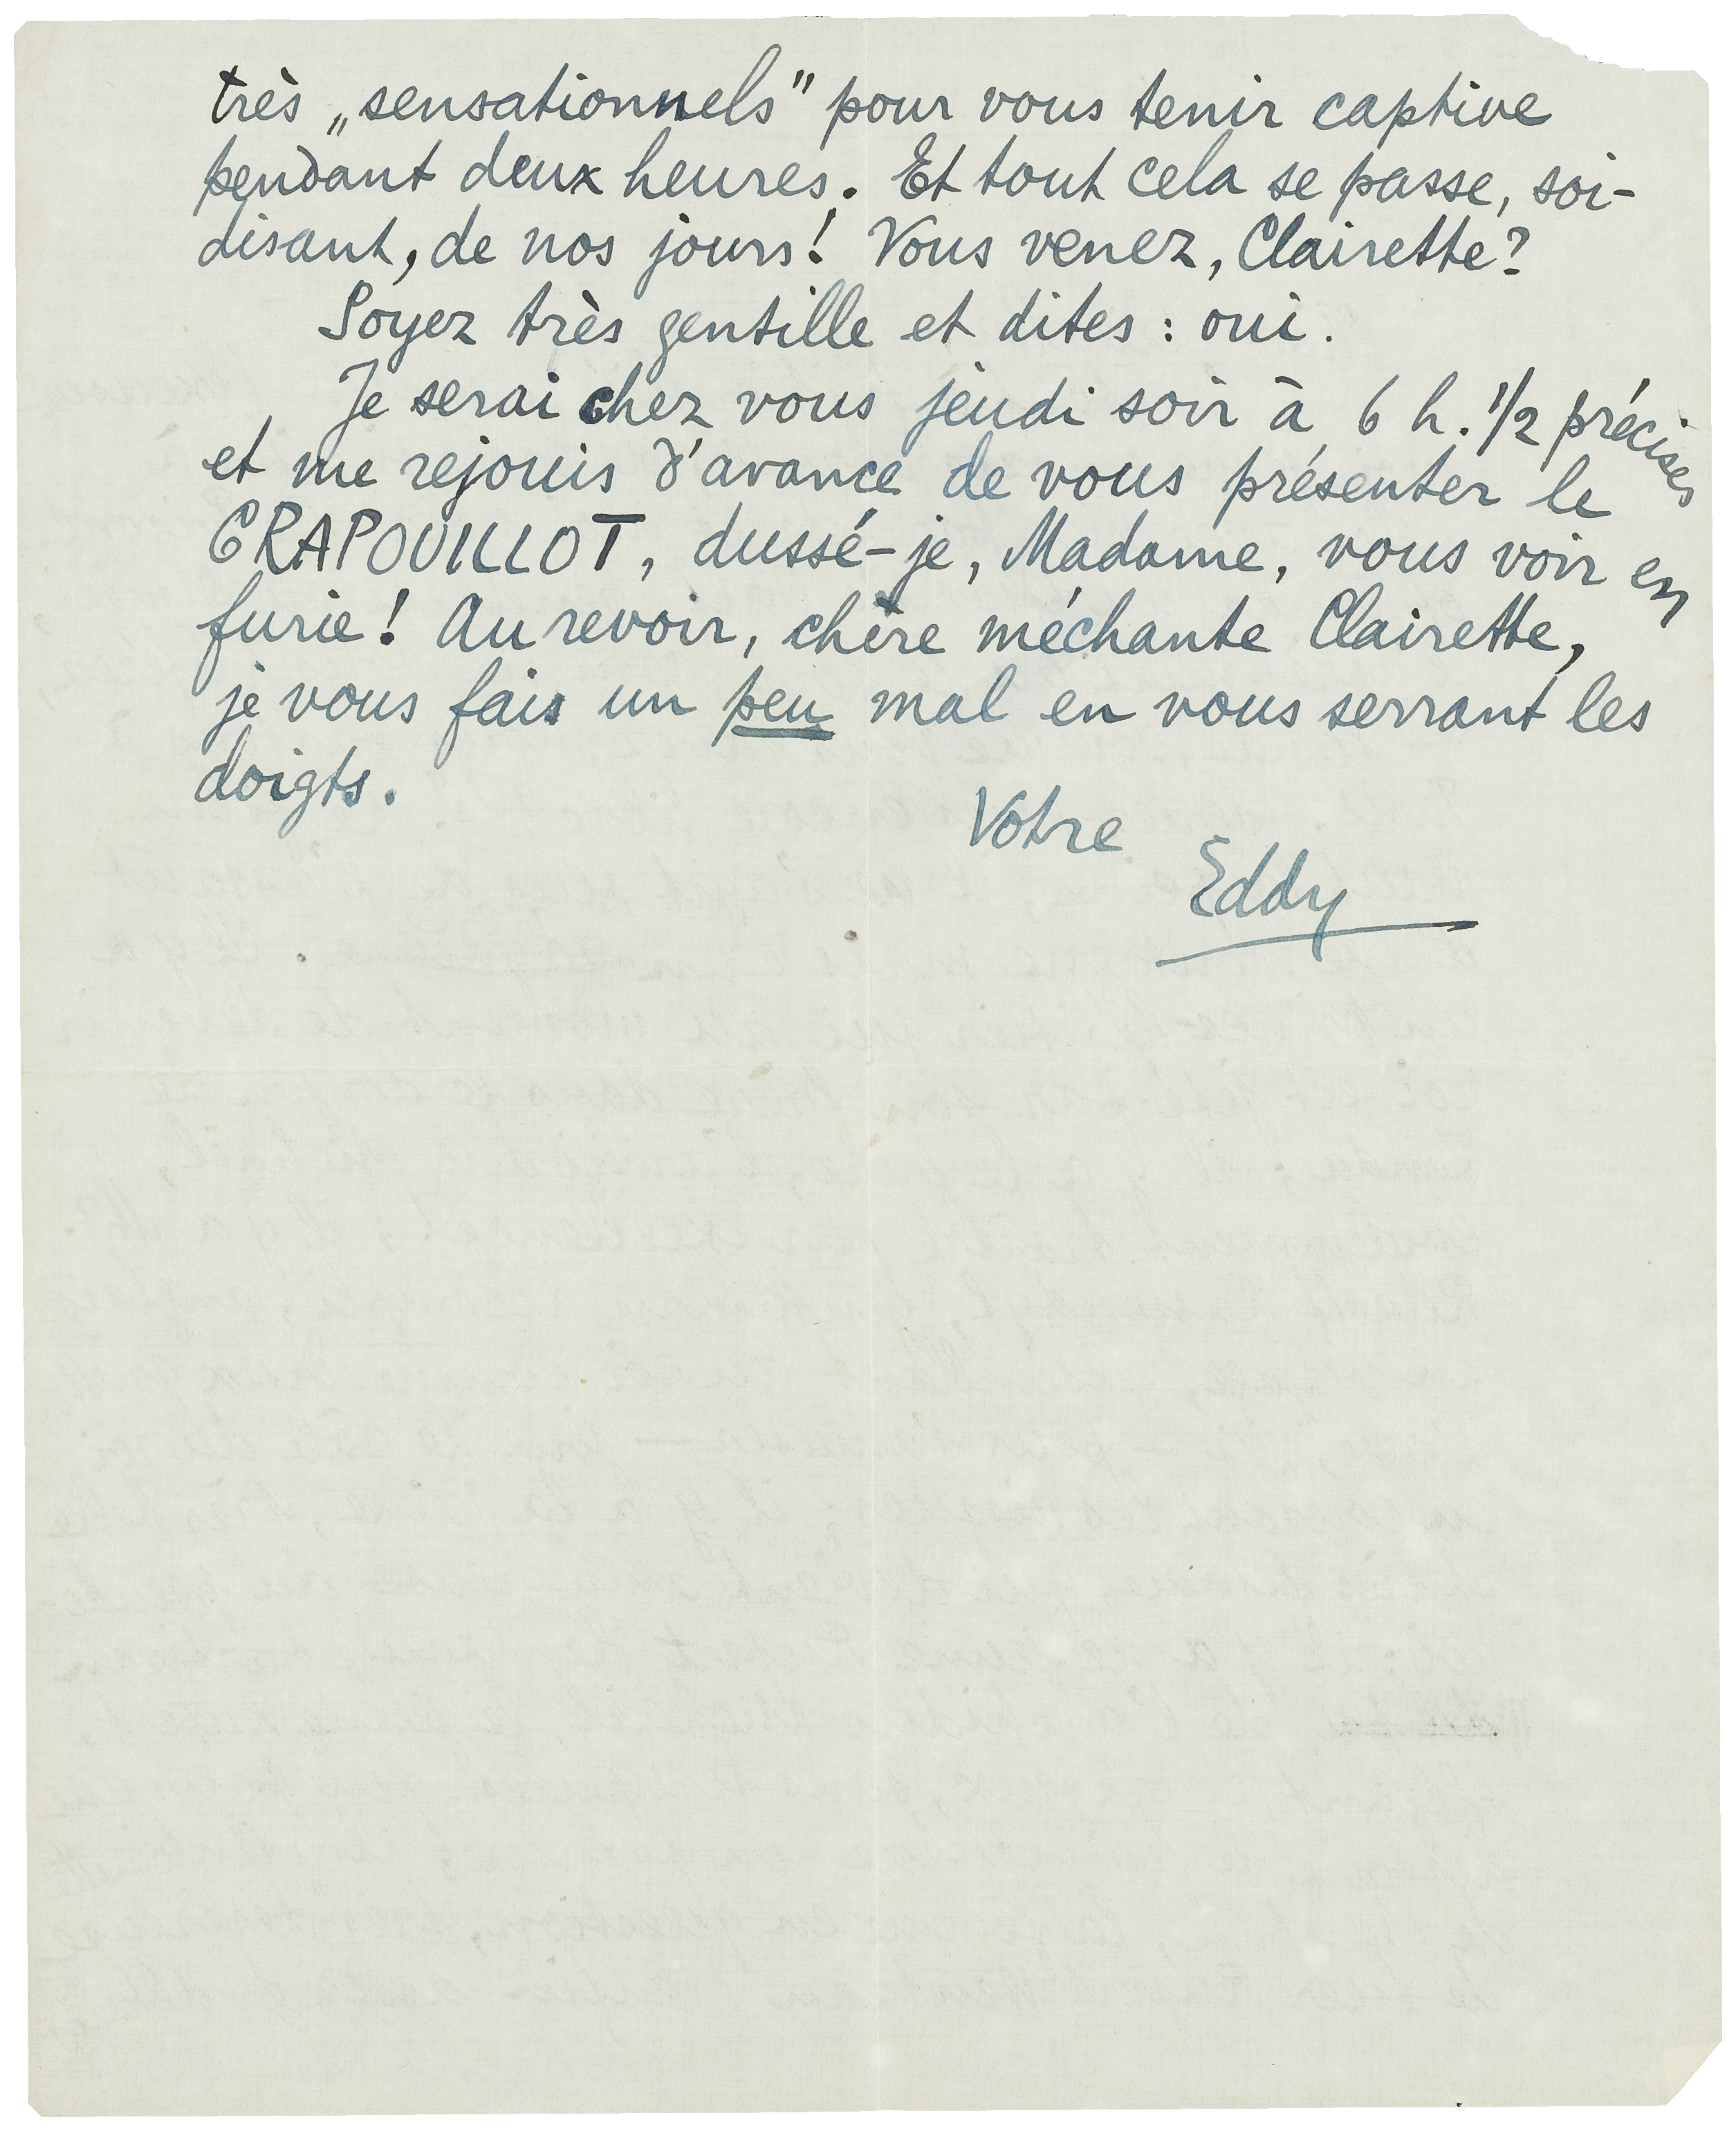 très „sensationnels" pour vous tenir captive
pendant deux heures. Et tout cela se passe, soi-
disant, de nos jours! Vous venez, Clairette?
Soyez très gentille et dites : oui.
Je serai chez vous jeudi soir à 6 h. 1/2 précises
et me rejouis d'avance de vous présenter le
CRAPOUILLOT, dussé-je, Madame, vous voir en
furie! Au revoir, chère méchante Clairette,
je vous fais un peu mal en vous serrant les
doigts.
Votre
Eddy